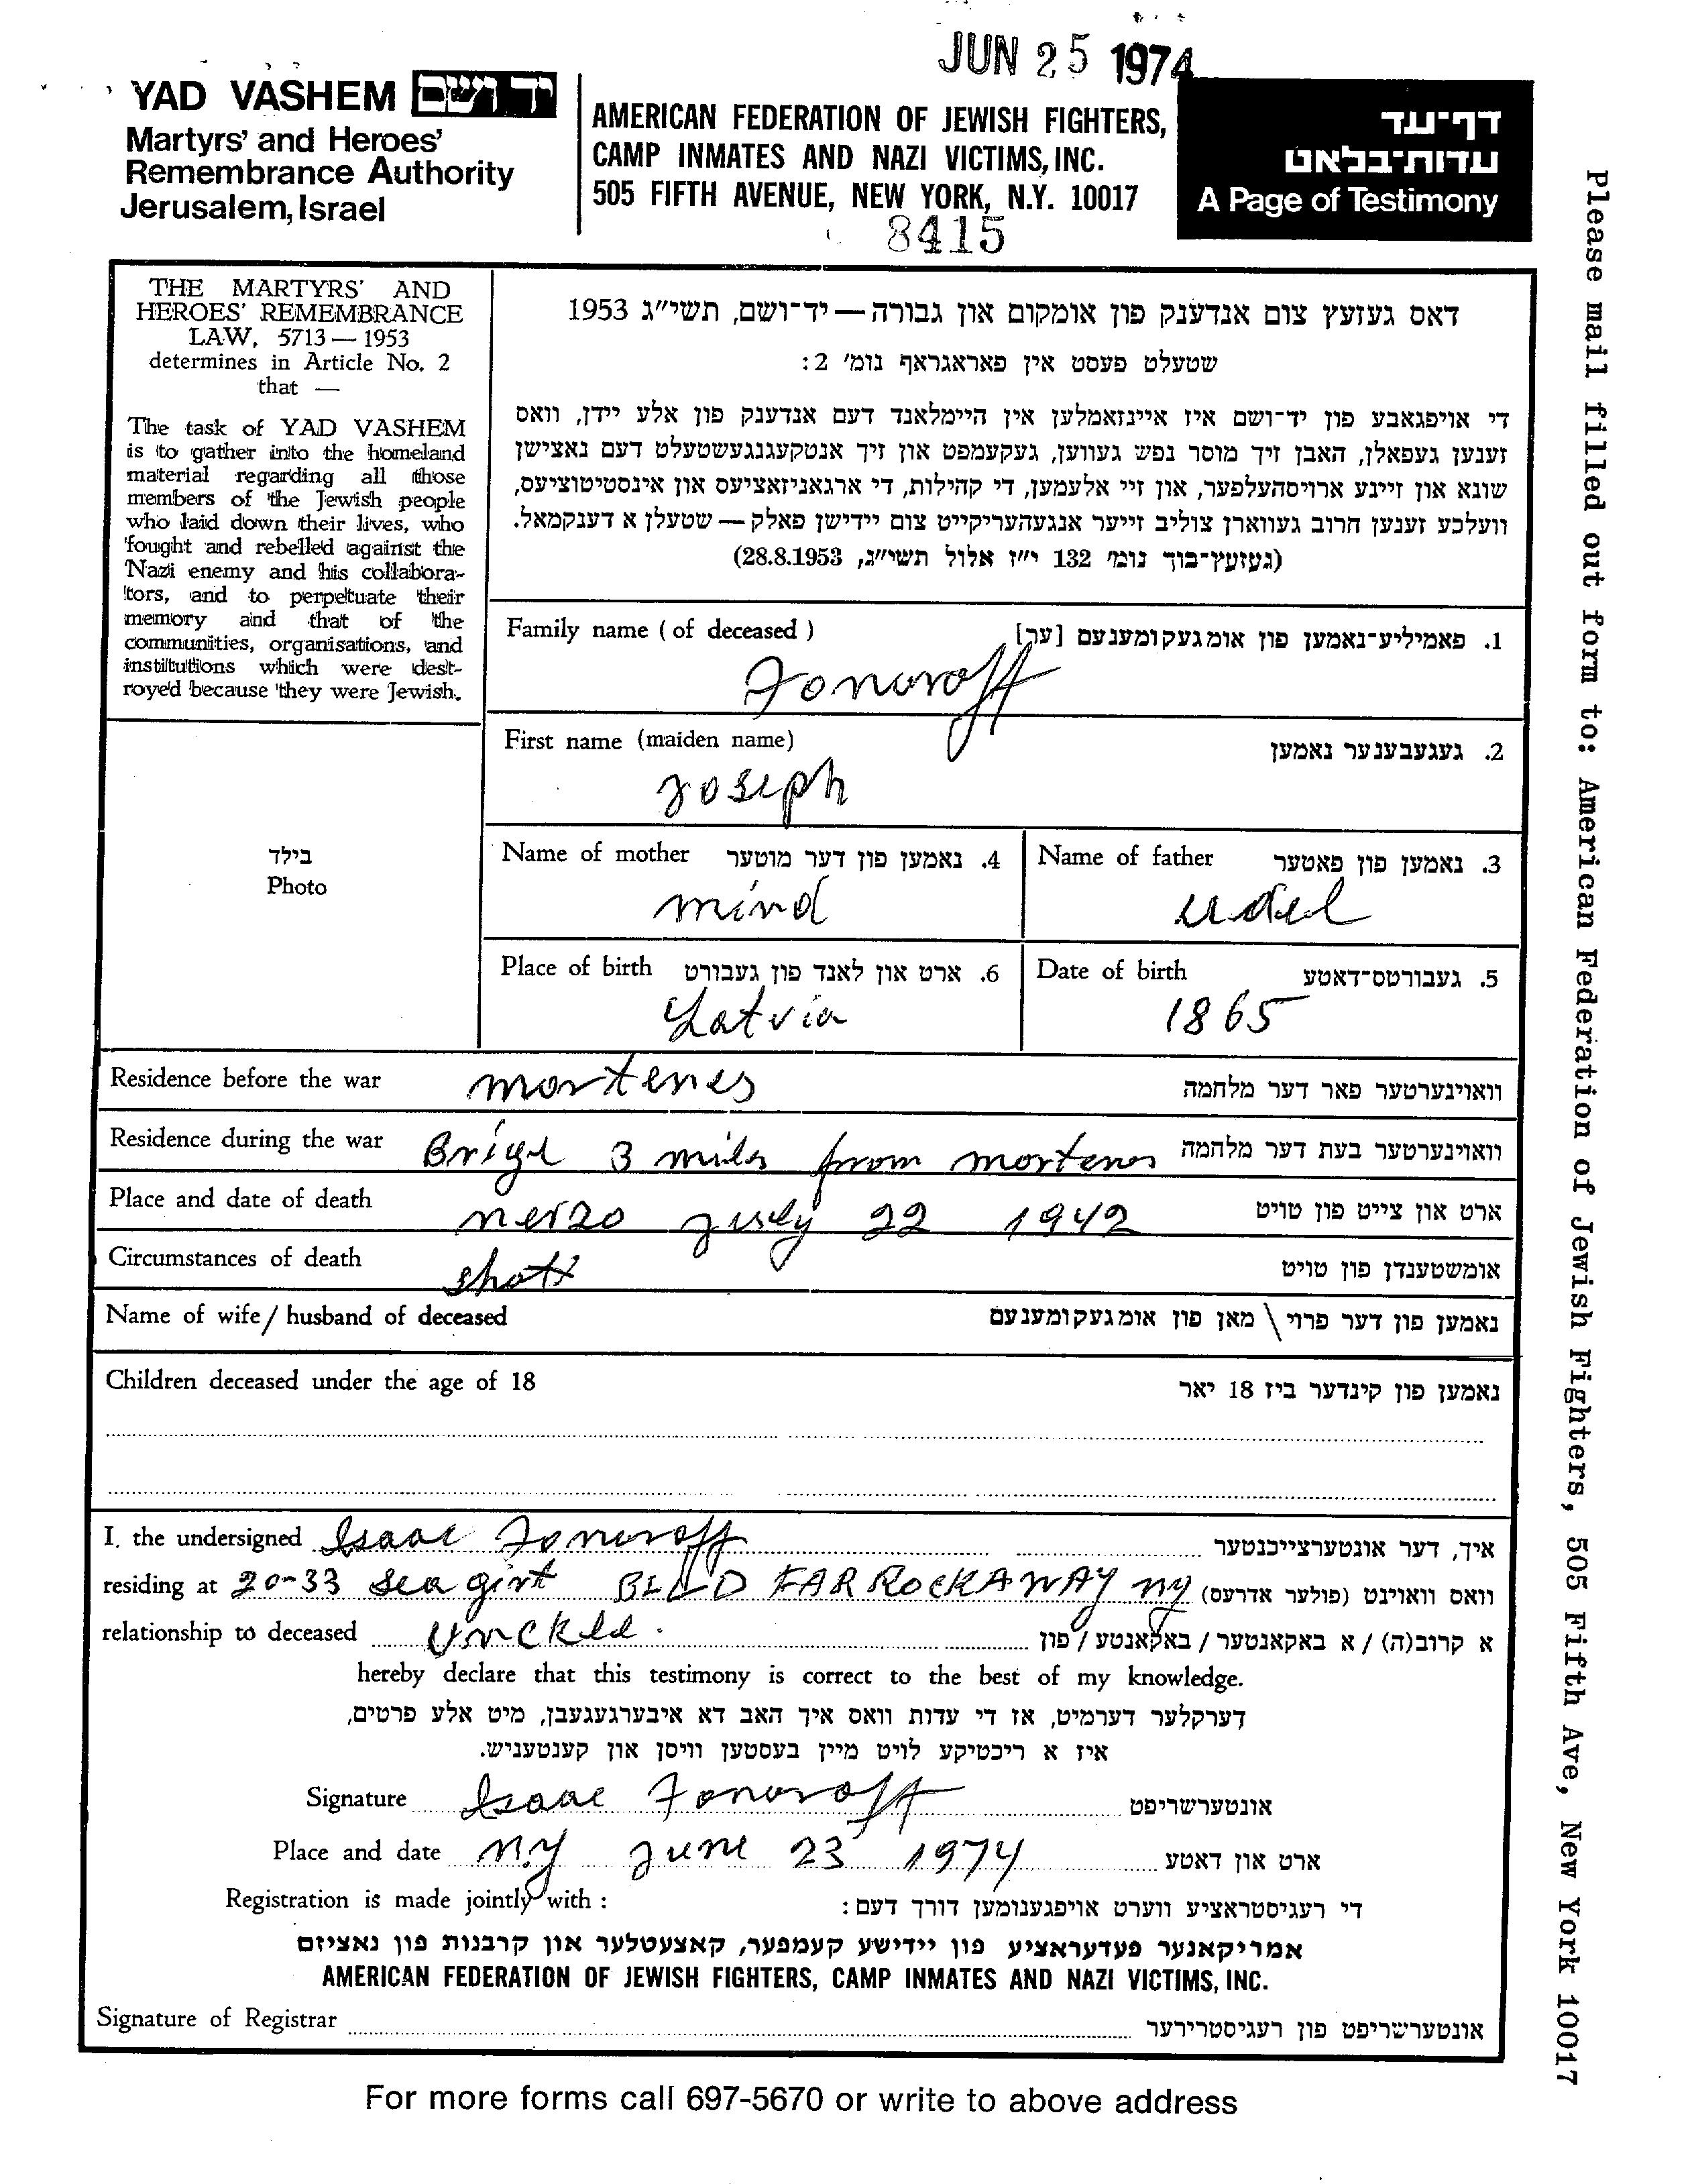 JUN 25 1974
YAD VASHEM יד ושם
Martyrs' and Heroes'
Remembrance Authority
Jerusalem, Israel
AMERICAN FEDERATION OF JEWISH FIGHTERS,
CAMP INMATES AND NAZI VICTIMS, INC.
505 FIFTH AVENUE, NEW YORK, N.Y. 10017
8415
דף־עד
עדות־בלאט
A Page of Testimony
THE MARTYRS' AND
HEROES' REMEMBRANCE
LAW, 5713 — 1953
determines in Article No. 2
that —
The task of YAD VASHEM
is to gather into the homeland
material regarding all those
members of the Jewish people
who laid down their lives, who
fought and rebelled against the
Nazi enemy and his collabora-
tors, and to perpetuate their
memory and that of the
communities, organisations, and
institutions which were dest-
royed because they were Jewish.
דאס געזעץ צום אנדענק פון אומקום און גבורה — יד־ושם, תשי״ג 1953
שטעלט פעסט אין פאראגראף נומ׳ 2:
די אויפגאבע פון יד־ושם איז איינזאמלען אין היימלאנד דעם אנדענק פון אלע יידן, וואס
זענען געפאלן, האבן זיך מוסר נפש געווען, געקעמפט און זיך אנטקעגנגעשטעלט דעם נאצישן
שונא און זיינע ארויסהעלפער, און זיי אלעמען, די קהילות, די ארגאניזאציעס און אינסטיטוציעס,
וועלכע זענען חרוב געווארן צוליב זייער אנגעהעריקייט צום יידישן פאלק — שטעלן א דענקמאל.
(געזעץ־בוך נומ׳ 132 י״ז אלול תשי״ג, 28.8.1953)
Family name (of deceased) 1. פאמיליע־נאמען פון אומגעקומענעם [ער]
Fonoroff
First name (maiden name) 2. געגעבענער נאמען
Joseph
בילד
Photo
Name of mother 4. נאמען פון דער מוטער
mind
Name of father 3. נאמען פון פאטער
udel
Place of birth 6. ארט און לאנד פון געבורט
Latvia
Date of birth 5. געבורטס־דאטע
1865
Residence before the war mortenes וואוינערטער פאר דער מלחמה
Residence during the war Brigl 3 miles from mortenes וואוינערטער בעת דער מלחמה
Place and date of death nerzo july 22 1942 ארט און צייט פון טויט
Circumstances of death shott אומשטענדן פון טויט
Name of wife / husband of deceased נאמען פון דער פרוי \ מאן פון אומגעקומענעם
Children deceased under the age of 18 נאמען פון קינדער ביז 18 יאר
I, the undersigned Isaac Fonoroff איך, דער אונטערצייכנטער
residing at 20-33 Sea girt BLVD FAR ROCKAWAY NY וואס וואוינט (פולער אדרעס)
relationship to deceased Unckle. א קרוב(ה) / א באקאנטער / באקאנטע / פון
hereby declare that this testimony is correct to the best of my knowledge.
דערקלער דערמיט, אז די עדות וואס איך האב דא איבערגעגעבן, מיט אלע פרטים,
איז א ריכטיקע לויט מיין בעסטען וויסן און קענטעניש.
Signature Isaac Fonoroff אונטערשריפט
Place and date N.y june 23 1974 ארט און דאטע
Registration is made jointly with : די רעגיסטראציע ווערט אויפגענומען דורך דעם:
אמריקאנער פעדעראציע פון יידישע קעמפער, קאצעטלער און קרבנות פון נאציזם
AMERICAN FEDERATION OF JEWISH FIGHTERS, CAMP INMATES AND NAZI VICTIMS, INC.
Signature of Registrar אונטערשריפט פון רעגיסטרירער
For more forms call 697-5670 or write to above address
Please mail filled out form to: American Federation of Jewish Fighters, 505 Fifth Ave, New York 10017